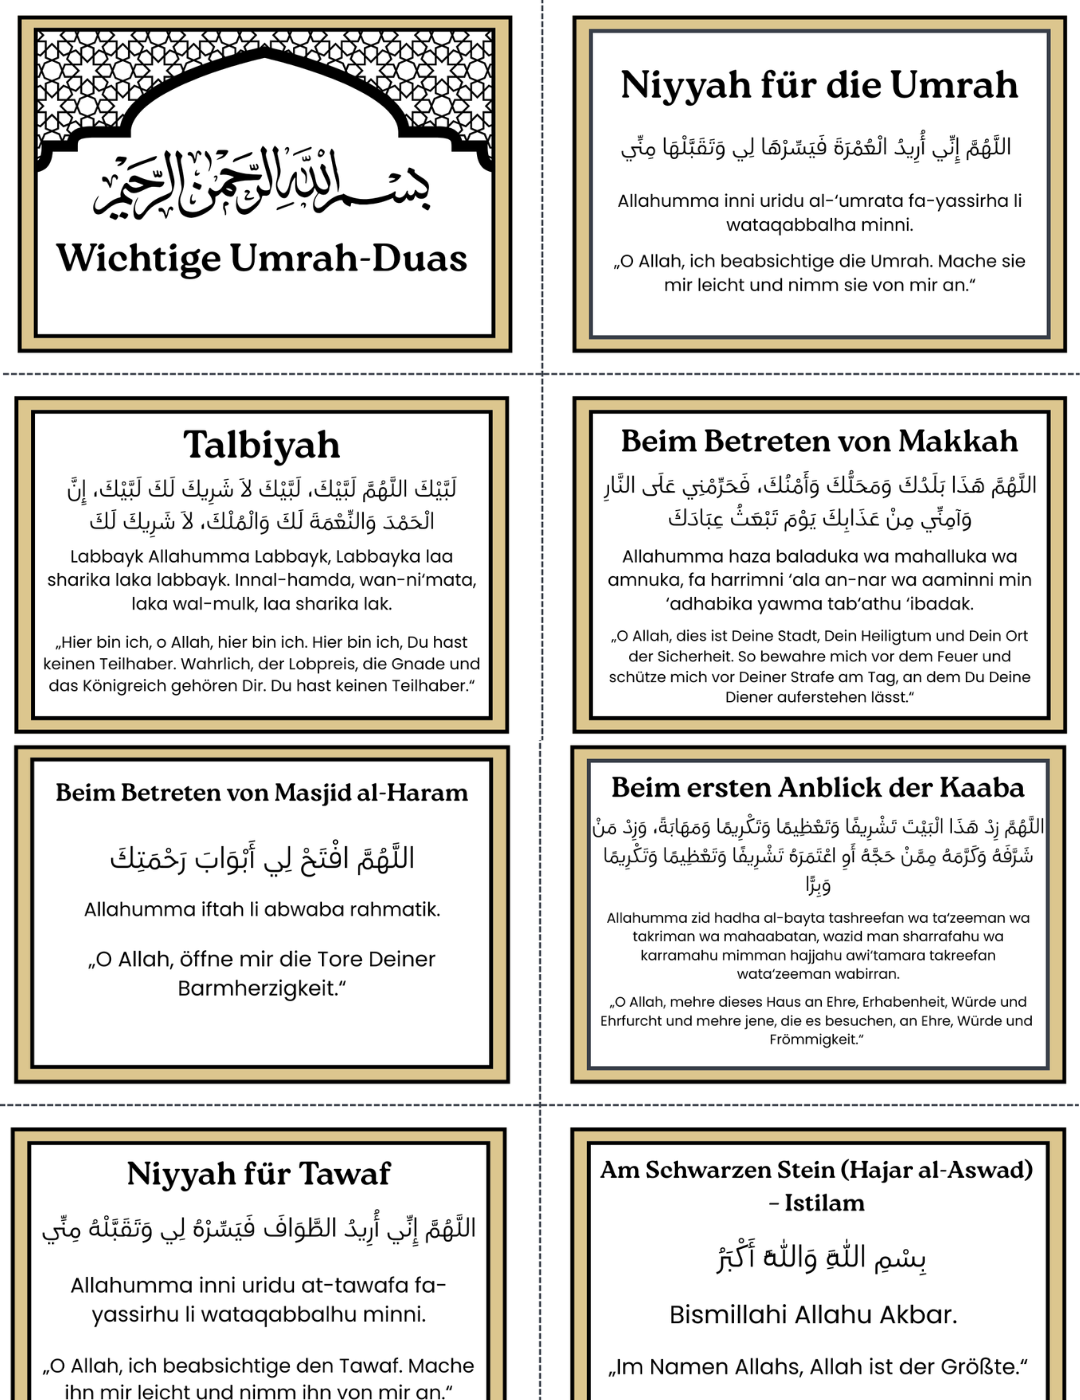 بسم الله الرحمن الرحيم
Wichtige Umrah-Duas
Niyyah für die Umrah
اللَّهُمَّ إِنِّي أُرِيدُ الْعُمْرَةَ فَيَسِّرْهَا لِي وَتَقَبَّلْهَا مِنِّي
Allahumma inni uridu al-‘umrata fa-yassirha li
wataqabbalha minni.
„O Allah, ich beabsichtige die Umrah. Mache sie
mir leicht und nimm sie von mir an.“
Talbiyah
لَبَّيْكَ اللَّهُمَّ لَبَّيْكَ، لَبَّيْكَ لاَ شَرِيكَ لَكَ لَبَّيْكَ، إِنَّ
الْحَمْدَ وَالنِّعْمَةَ لَكَ وَالْمُلْكَ، لاَ شَرِيكَ لَكَ
Labbayk Allahumma Labbayk, Labbayka laa
sharika laka labbayk. Innal-hamda, wan-ni‘mata,
laka wal-mulk, laa sharika lak.
„Hier bin ich, o Allah, hier bin ich. Hier bin ich, Du hast
keinen Teilhaber. Wahrlich, der Lobpreis, die Gnade und
das Königreich gehören Dir. Du hast keinen Teilhaber.“
Beim Betreten von Makkah
اللَّهُمَّ هَذَا بَلَدُكَ وَمَحَلُّكَ وَأَمْنُكَ، فَحَرِّمْنِي عَلَى النَّارِ
وَآمِنِّي مِنْ عَذَابِكَ يَوْمَ تَبْعَثُ عِبَادَكَ
Allahumma haza baladuka wa mahalluka wa
amnuka, fa harrimni ‘ala an-nar wa aaminni min
‘adhabika yawma tab‘athu ‘ibadak.
„O Allah, dies ist Deine Stadt, Dein Heiligtum und Dein Ort
der Sicherheit. So bewahre mich vor dem Feuer und
schütze mich vor Deiner Strafe am Tag, an dem Du Deine
Diener auferstehen lässt.“
Beim Betreten von Masjid al-Haram
اللَّهُمَّ افْتَحْ لِي أَبْوَابَ رَحْمَتِكَ
Allahumma iftah li abwaba rahmatik.
„O Allah, öffne mir die Tore Deiner
Barmherzigkeit.“
Beim ersten Anblick der Kaaba
اللَّهُمَّ زِدْ هَذَا الْبَيْتَ تَشْرِيفًا وَتَعْظِيمًا وَتَكْرِيمًا وَمَهَابَةً، وَزِدْ مَنْ
شَرَّفَهُ وَكَرَّمَهُ مِمَّنْ حَجَّهُ أَوِ اعْتَمَرَهُ تَشْرِيفًا وَتَعْظِيمًا وَتَكْرِيمًا
وَبِرًّا
Allahumma zid hadha al-bayta tashreefan wa ta‘zeeman wa
takriman wa mahaabatan, wazid man sharrafahu wa
karramahu mimman hajjahu awi‘tamara takreefan
wata‘zeeman wabirran.
„O Allah, mehre dieses Haus an Ehre, Erhabenheit, Würde und
Ehrfurcht und mehre jene, die es besuchen, an Ehre, Würde und
Frömmigkeit.“
Niyyah für Tawaf
اللَّهُمَّ إِنِّي أُرِيدُ الطَّوَافَ فَيَسِّرْهُ لِي وَتَقَبَّلْهُ مِنِّي
Allahumma inni uridu at-tawafa fa-
yassirhu li wataqabbalhu minni.
„O Allah, ich beabsichtige den Tawaf. Mache
ihn mir leicht und nimm ihn von mir an.“
Am Schwarzen Stein (Hajar al-Aswad)
– Istilam
بِسْمِ اللَّهِ وَاللَّهُ أَكْبَرُ
Bismillahi Allahu Akbar.
„Im Namen Allahs, Allah ist der Größte.“